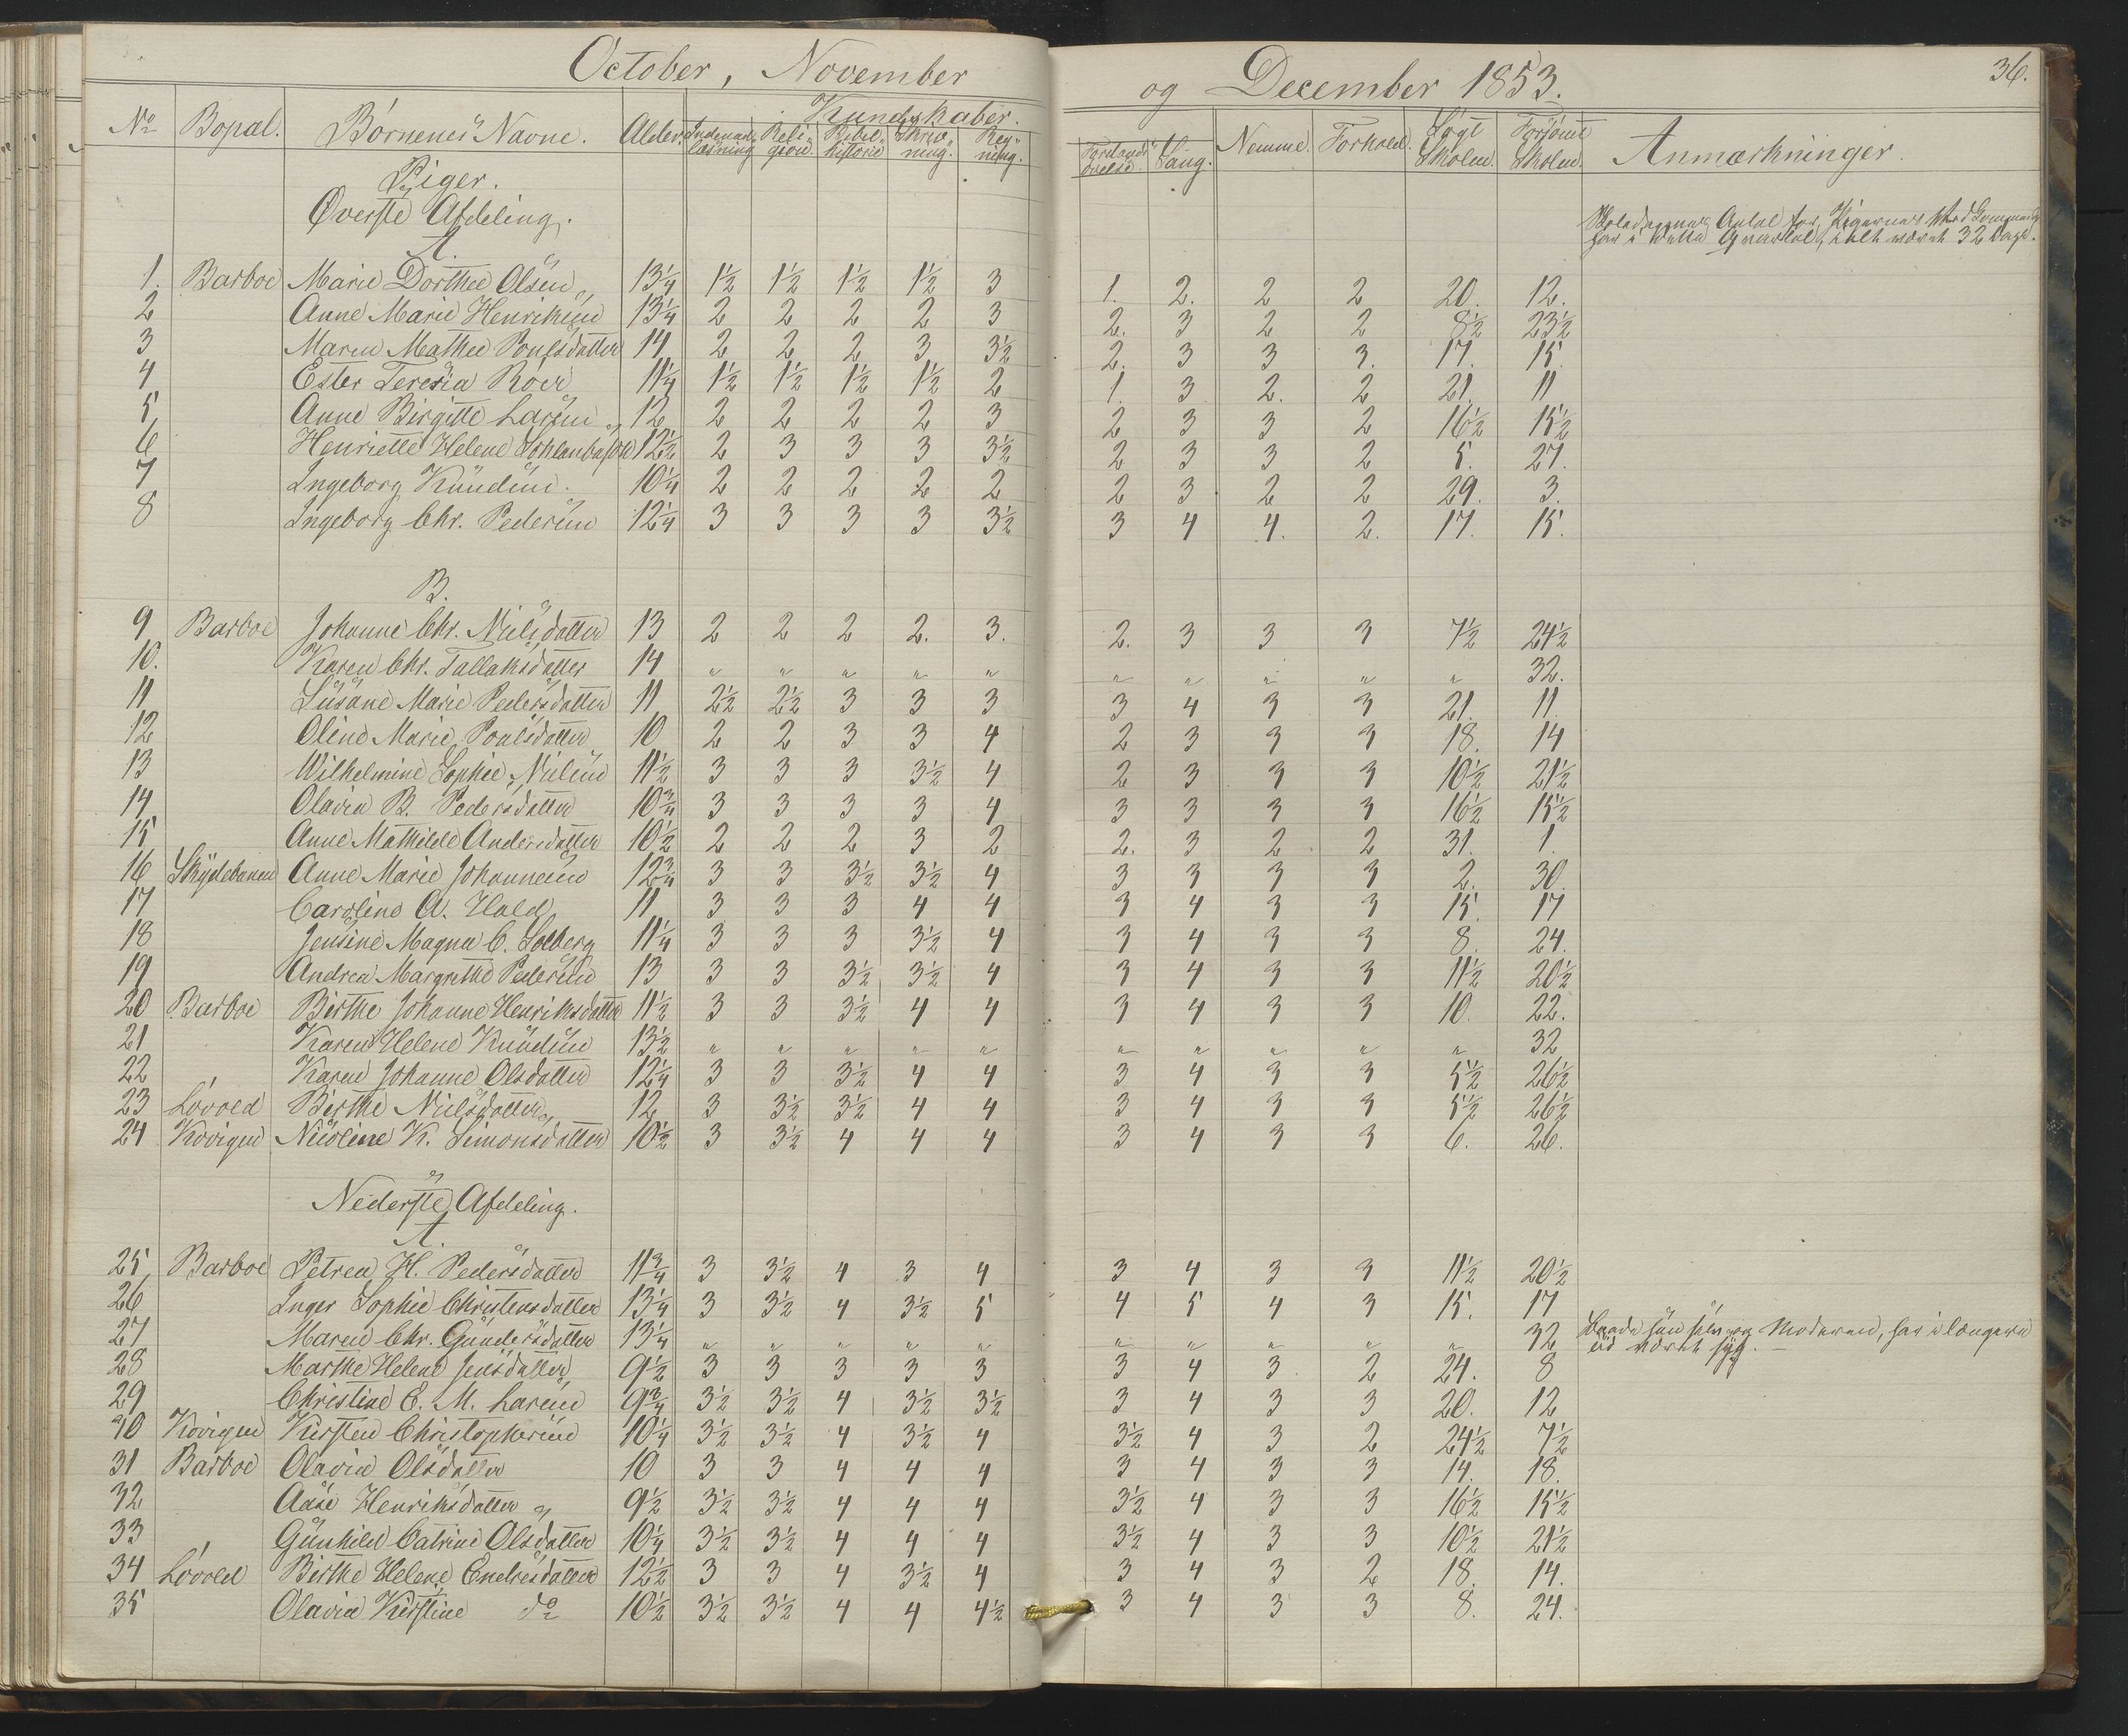 October, November og December 1853. 36.
No Bopæl. Børnenes Navne. Alder. Kundskaber. Nemme. Forhold. Søgt Skolen. Forsömt Skolen. Anmærkninger.
Indenad- læsning Reli- gion. Bibel- historie Skriv- ning. Reg- ning. Forstands- övelse. Sang.
Piger.
Øverste Afdeling.
Skoledagenes Antal for Pigernes
har i dette Qvartal, i alt været 32 Dage.
A.
1. Barboe Marie Dorthea Olsen 13¼ 1½ 1½ 1½ 1½ 3 1. 2. 2 2 20. 12.
2 Anne Marie Henriksen 13¼ 2 2 2 2 3 2. 3 2 2 8½ 23½
3 Maren Mathea Poulsdatter 14 2 2 2 3 3½ 2. 3 3 3. 17. 15
4 Ester Teresia Röer 11¼ 1½ 1½ 1½ 1½ 2 1. 3 2. 2 21. 11
5 Anne Birgitte Larsen 12 2 2 2 2 3 2 3 3 2 16½ 15½
6 Henriette Helene 12½ 2 3 3 3 3½ 2 3 3 2 5. 27.
7 Ingeborg Knudsen. 10¼ 2 2 2 2 2 2 3 2 2 29. 3.
8 Ingeborg Chr. Pedersen 12¼ 3 3 3 3 3½ 3 4 4. 2. 17. 15.
B.
9 Barboe Johanne Chr. Nielsdatter 13 2 2 2 2. 3. 2. 3 3 3 7½ 24½
10. Karen Chr. Tallaksdatter 14 " " " " " " " " " " 32.
11 Susane Marie Pedersdatter 11 2½ 2½ 3 3 3 3 4 3 3 21. 11
12 Oline Marie Poulsdatter 10 2 2 3 3 4 2 3 3 3 18. 14
13 Wilhelmine Sophie Nielsen 11½ 3 3 3 3½ 4 2 3 3 3 10½ 21½
14 Olavia B. Pedersdatter 10¾ 3 3 3 3 4 3 3 3 3 16½ 15½
15 Anne Mathilde Andersdatter 10½ 2 2 2 3 2 2. 3 2 2 31. 1.
16 Skydebanen Anne Marie Johannesen 12¾ 3 3 3½ 3½ 4 3 3 3 3 2. 30.
17 Caroline A. Hald 11 3 3 3 4 4 3 4 3 3 15. 17
18 Jensine Magna C. Solberg 11¼ 3 3 3 3½ 4 3 4 3 3 8. 24.
19 Andrea Margrethe Pedersen 13 3 3 3½ 3½ 4 3 4 3 3 11½ 20½
20 Barboe Birthe Johanne Henriksdatter 11½ 3 3 3½ 4 4 3 4 3 3 10. 22.
21 Karen Helene Knudsen 13½ " " " " " " " " " " 32
22 Karen Johanne Olsdatter 12¼ 3 3 3½ 4 4 3 4 3 3 5½ 26½
23 Lövold Birthe Nielsdatter 12 3 3½ 3½ 4 4 3 4 3 3 5½ 26½
24 Kovigen Nicoline K. Simonsdatter 10½ 3 3½ 4 4 4 3 4 3 3 6. 26.
Nederste Afdeling.
A.
25 Barboe Petrea H. Pedersdatter 11¾ 3 3½ 4 3 4 3 4 3 3 11½ 20½
26 Inger Sophie Christensdatter 13¼ 3 3½ 4 3½ 5 4 5 4 3 15. 17
27 Maren Chr. Gundersdatter 13¼ " " " " " " " " " " 32 Baade hun selv og Moderen, har i længere
Tid været syg.
28 Marthe Helene Jensdatter 9½ 3 3 3 3 3 3 4 3 2 24. 8
29 Christine E. M. Larsen 9¾ 3½ 3½ 4 3½ 3½ 3 4 3 3 20. 12
30 Kovigen Kirsten Christophersen 10¼ 3½ 3½ 4 3½ 4 3½ 4 3 2 24½ 7½
31 Barboe Olavia Olsdatter 10 3 3 4 4 4 3 4 3 3 14. 18.
32 Aase Henriksdatter 9½ 3½ 3½ 4 4 4 3½ 4 3 3 16½ 15½
33 Gunhild Catrine Olsdatter 10¼ 3½ 3½ 4 4 4 3½ 4 3 3 10½ 21½
34 Lövold Birthe Helene Endresdatter 12½ 3 3 4 3½ 4 3 4 3 2 18. 14.
35 Olavia Kirstine do 10½ 3½ 3½ 4 4 4½ 3 4 3 3 8. 24.